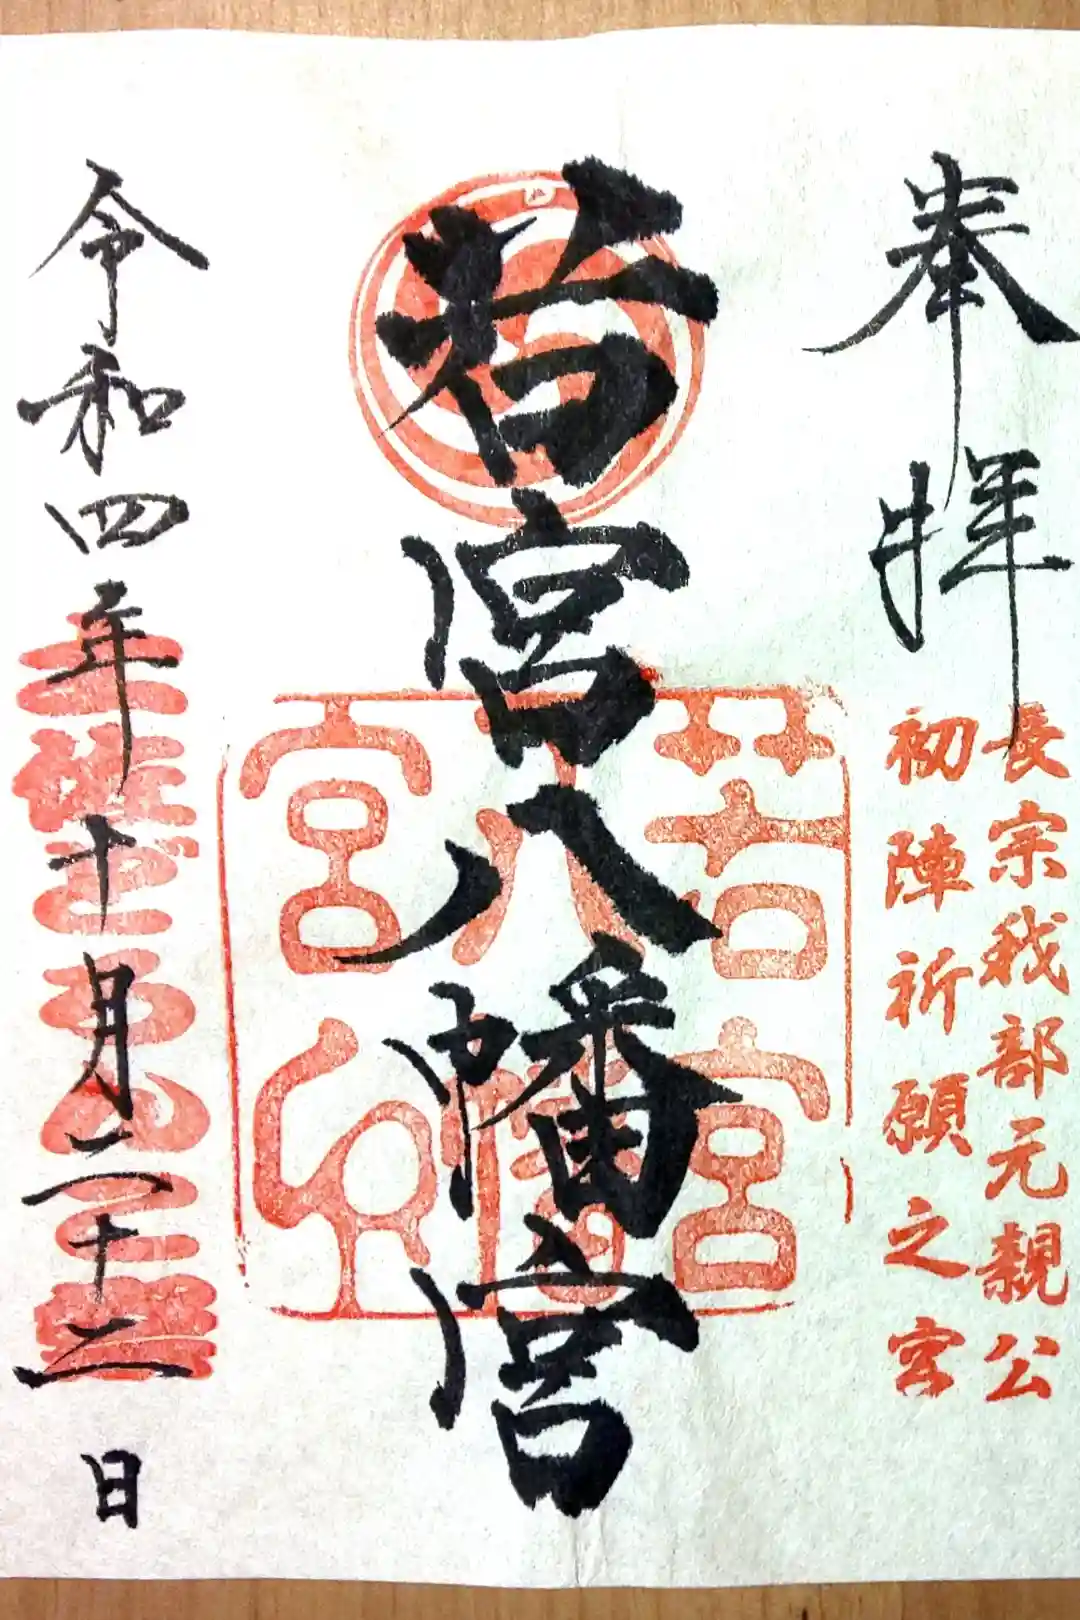 奉拝
長宗我部元親公
初陣祈願之宮
若宮八幡宮
若宮
八幡
宮
令和四年十月二十二日